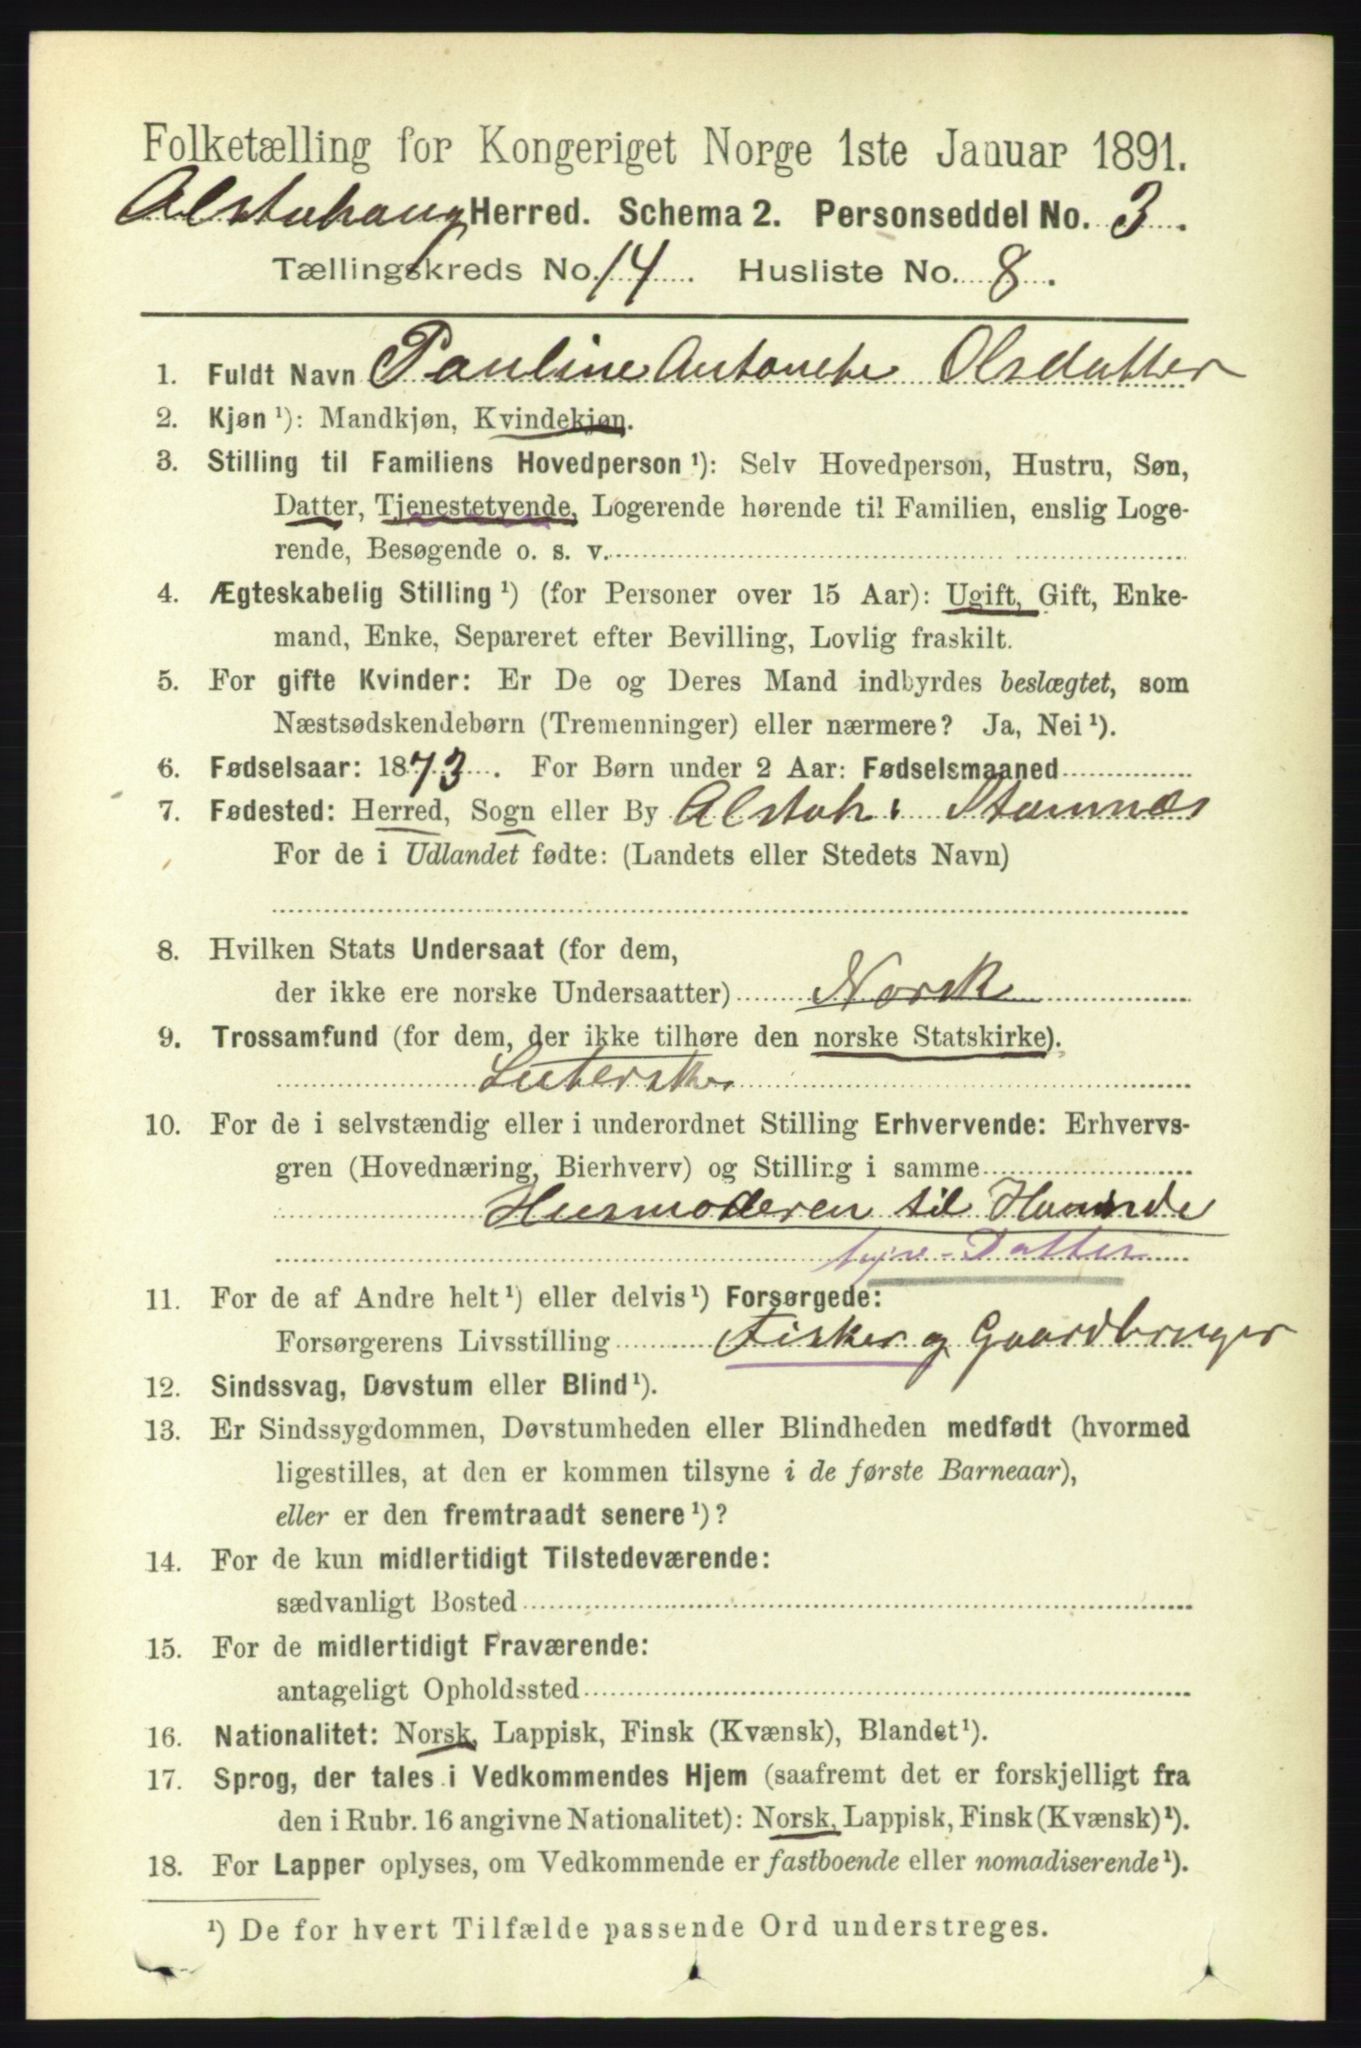 Folketælling for Kongeriget Norge 1ste Januar 1891.
Alstahaug Herred. Schema 2. Personseddel No. 3.
Tællingskreds No. 14. Husliste No. 8.
1. Fuldt Navn Pauline Antonete Olsdatter
2. Kjøn ¹): Mandkjøn, Kvindekjøn.
3. Stilling til Familiens Hovedperson ¹): Selv Hovedperson, Hustru, Søn,
Datter, Tjenestetyende, Logerende hørende til Familien, enslig Loge-
rende, Besøgende o. s. v.
4. Ægteskabelig Stilling ¹) (for Personer over 15 Aar): Ugift, Gift, Enke-
mand, Enke, Separeret efter Bevilling, Lovlig fraskilt.
5. For gifte Kvinder: Er De og Deres Mand indbyrdes beslægtet, som
Næstsødskendebørn (Tremenninger) eller nærmere? Ja, Nei ¹).
6. Fødselsaar: 1873. For Børn under 2 Aar: Fødselsmaaned
7. Fødested: Herred, Sogn eller By Alstah. Stamnæs
For de i Udlandet fødte: (Landets eller Stedets Navn)
8. Hvilken Stats Undersaat (for dem,
der ikke ere norske Undersaatter) Norsk
9. Trossamfund (for dem, der ikke tilhøre den norske Statskirke).
Luterske
10. For de i selvstændig eller i underordnet Stilling Erhvervende: Erhvervs-
gren (Hovednæring, Bierhverv) og Stilling i samme
Husmoderen til Haande
Datter
11. For de af Andre helt ¹) eller delvis ¹) Forsørgede:
Forsørgerens Livsstilling Fisker og Gaardbruger
12. Sindssvag, Døvstum eller Blind ¹).
13. Er Sindssygdommen, Døvstumheden eller Blindheden medfødt (hvormed
ligestilles, at den er kommen tilsyne i de første Barneaar),
eller er den fremtraadt senere ¹)?
14. For de kun midlertidigt Tilstedeværende:
sædvanligt Bosted
15. For de midlertidigt Fraværende:
antageligt Opholdssted
16. Nationalitet: Norsk, Lappisk, Finsk (Kvænsk), Blandet ¹).
17. Sprog, der tales i Vedkommendes Hjem (saafremt det er forskjelligt fra
den i Rubr. 16 angivne Nationalitet): Norsk, Lappisk, Finsk (Kvænsk) ¹).
18. For Lapper oplyses, om Vedkommende er fastboende eller nomadiserende ¹).
¹) De for hvert Tilfælde passende Ord understreges.